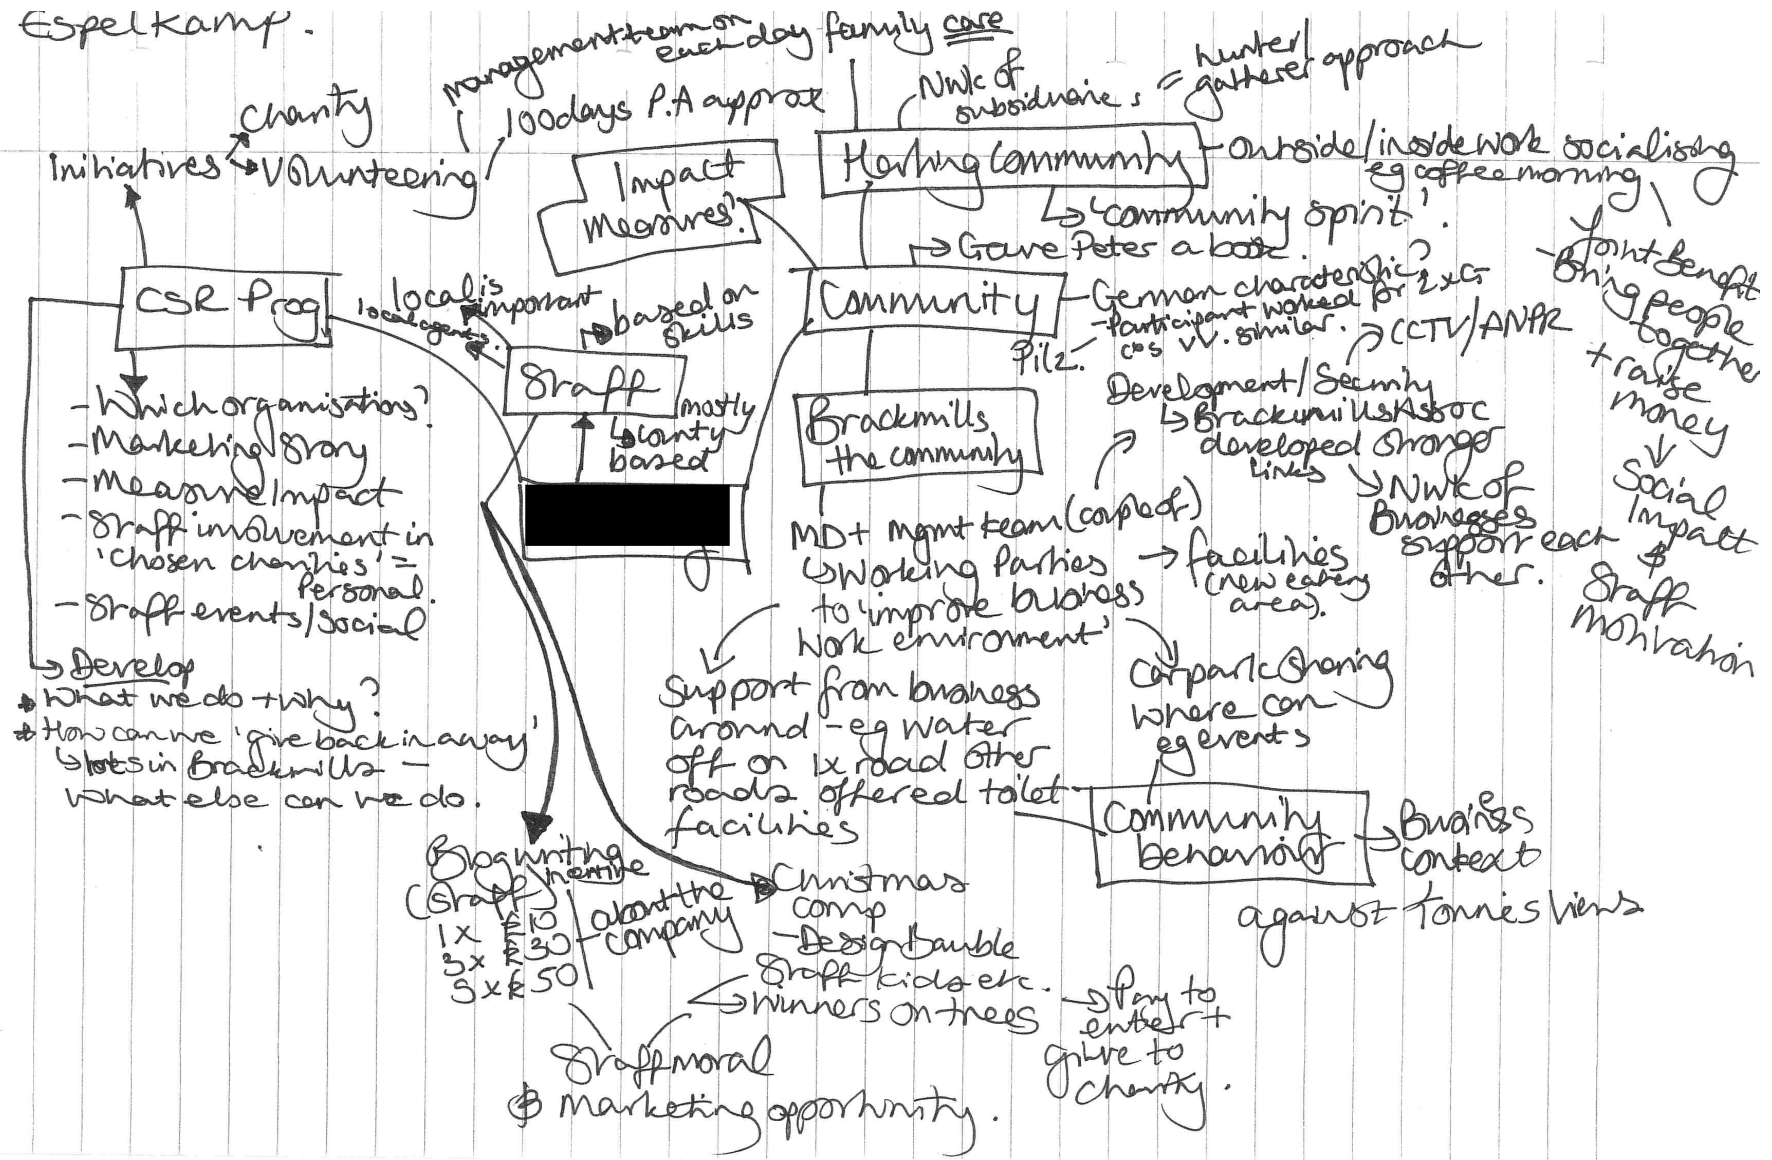 Espelkamp.
management team on
each day
family care
hunter/
gatherer approach
Nwk of
subsiduarie s =
Charity
100 days P.A approx
Initiatives
Volunteering
Impact
Measures?
Harting Community
outside/inside work socialising
eg coffee morning
'community spirit'.
Gave Peter a book.
Joint Benefit
- Bring people
together
+ raise
money
Social
Impact
&
Staff
motivation
CSR Prog
local is
important
local agents.
based on
skills
Staff
mostly
county
based
Community
- German characteristic?
- Participant worked for 2 x G
cos vv. similar.
Pilz.
CCTV/ANPR
Development/Security
Brackmills Assoc
developed stronger
links
Nwk of
Businesses
support each
other.
Brackmills
the community
- Which organisations?
- Marketing Story
- Measure Impact
- Staff involvement in
'chosen charities' =
Personal.
- Staff events/social
Develop
* What we do + why?
* How can we 'give back in a way'
lots in Brackmills -
what else can we do.
MD + Mgmt team (couple of)
Working Parties
to 'improve business
work environment'
facilities
(new eating
area).
Support from business
around - eg water
off on 1x road other
roads offered toilet
facilities
Carpark sharing
where can
eg events
Community
behaviour
Business
context
against Tonnies views
Blog writing
incentive
(Staff)
1x £10
3x £30
5x £50
about the
company
Christmas
comp
- Design Bauble
Staff kids etc.
winners on trees
Pay to
enter +
give to
charity.
Staff moral
& marketing opportunity.